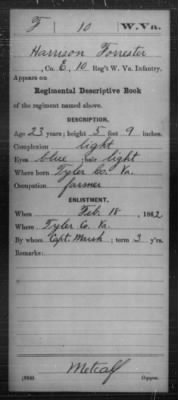 F 10 W.Va.
Harrison Forrester
, Co. E, 10 Reg't W. Va. Infantry.
Appears on
Regimental Descriptive Book
of the regiment named above.
DESCRIPTION.
Age 23 years; height 5 feet 9 inches.
Complexion light
Eyes blue; hair light
Where born Tyler Co. Va.
Occupation farmer
ENLISTMENT.
When Feb. 18, 1862
Where Tyler Co. Va.
By whom Capt. Marsh; term 3 y'rs.
Remarks:
Metcalf
Copyist.